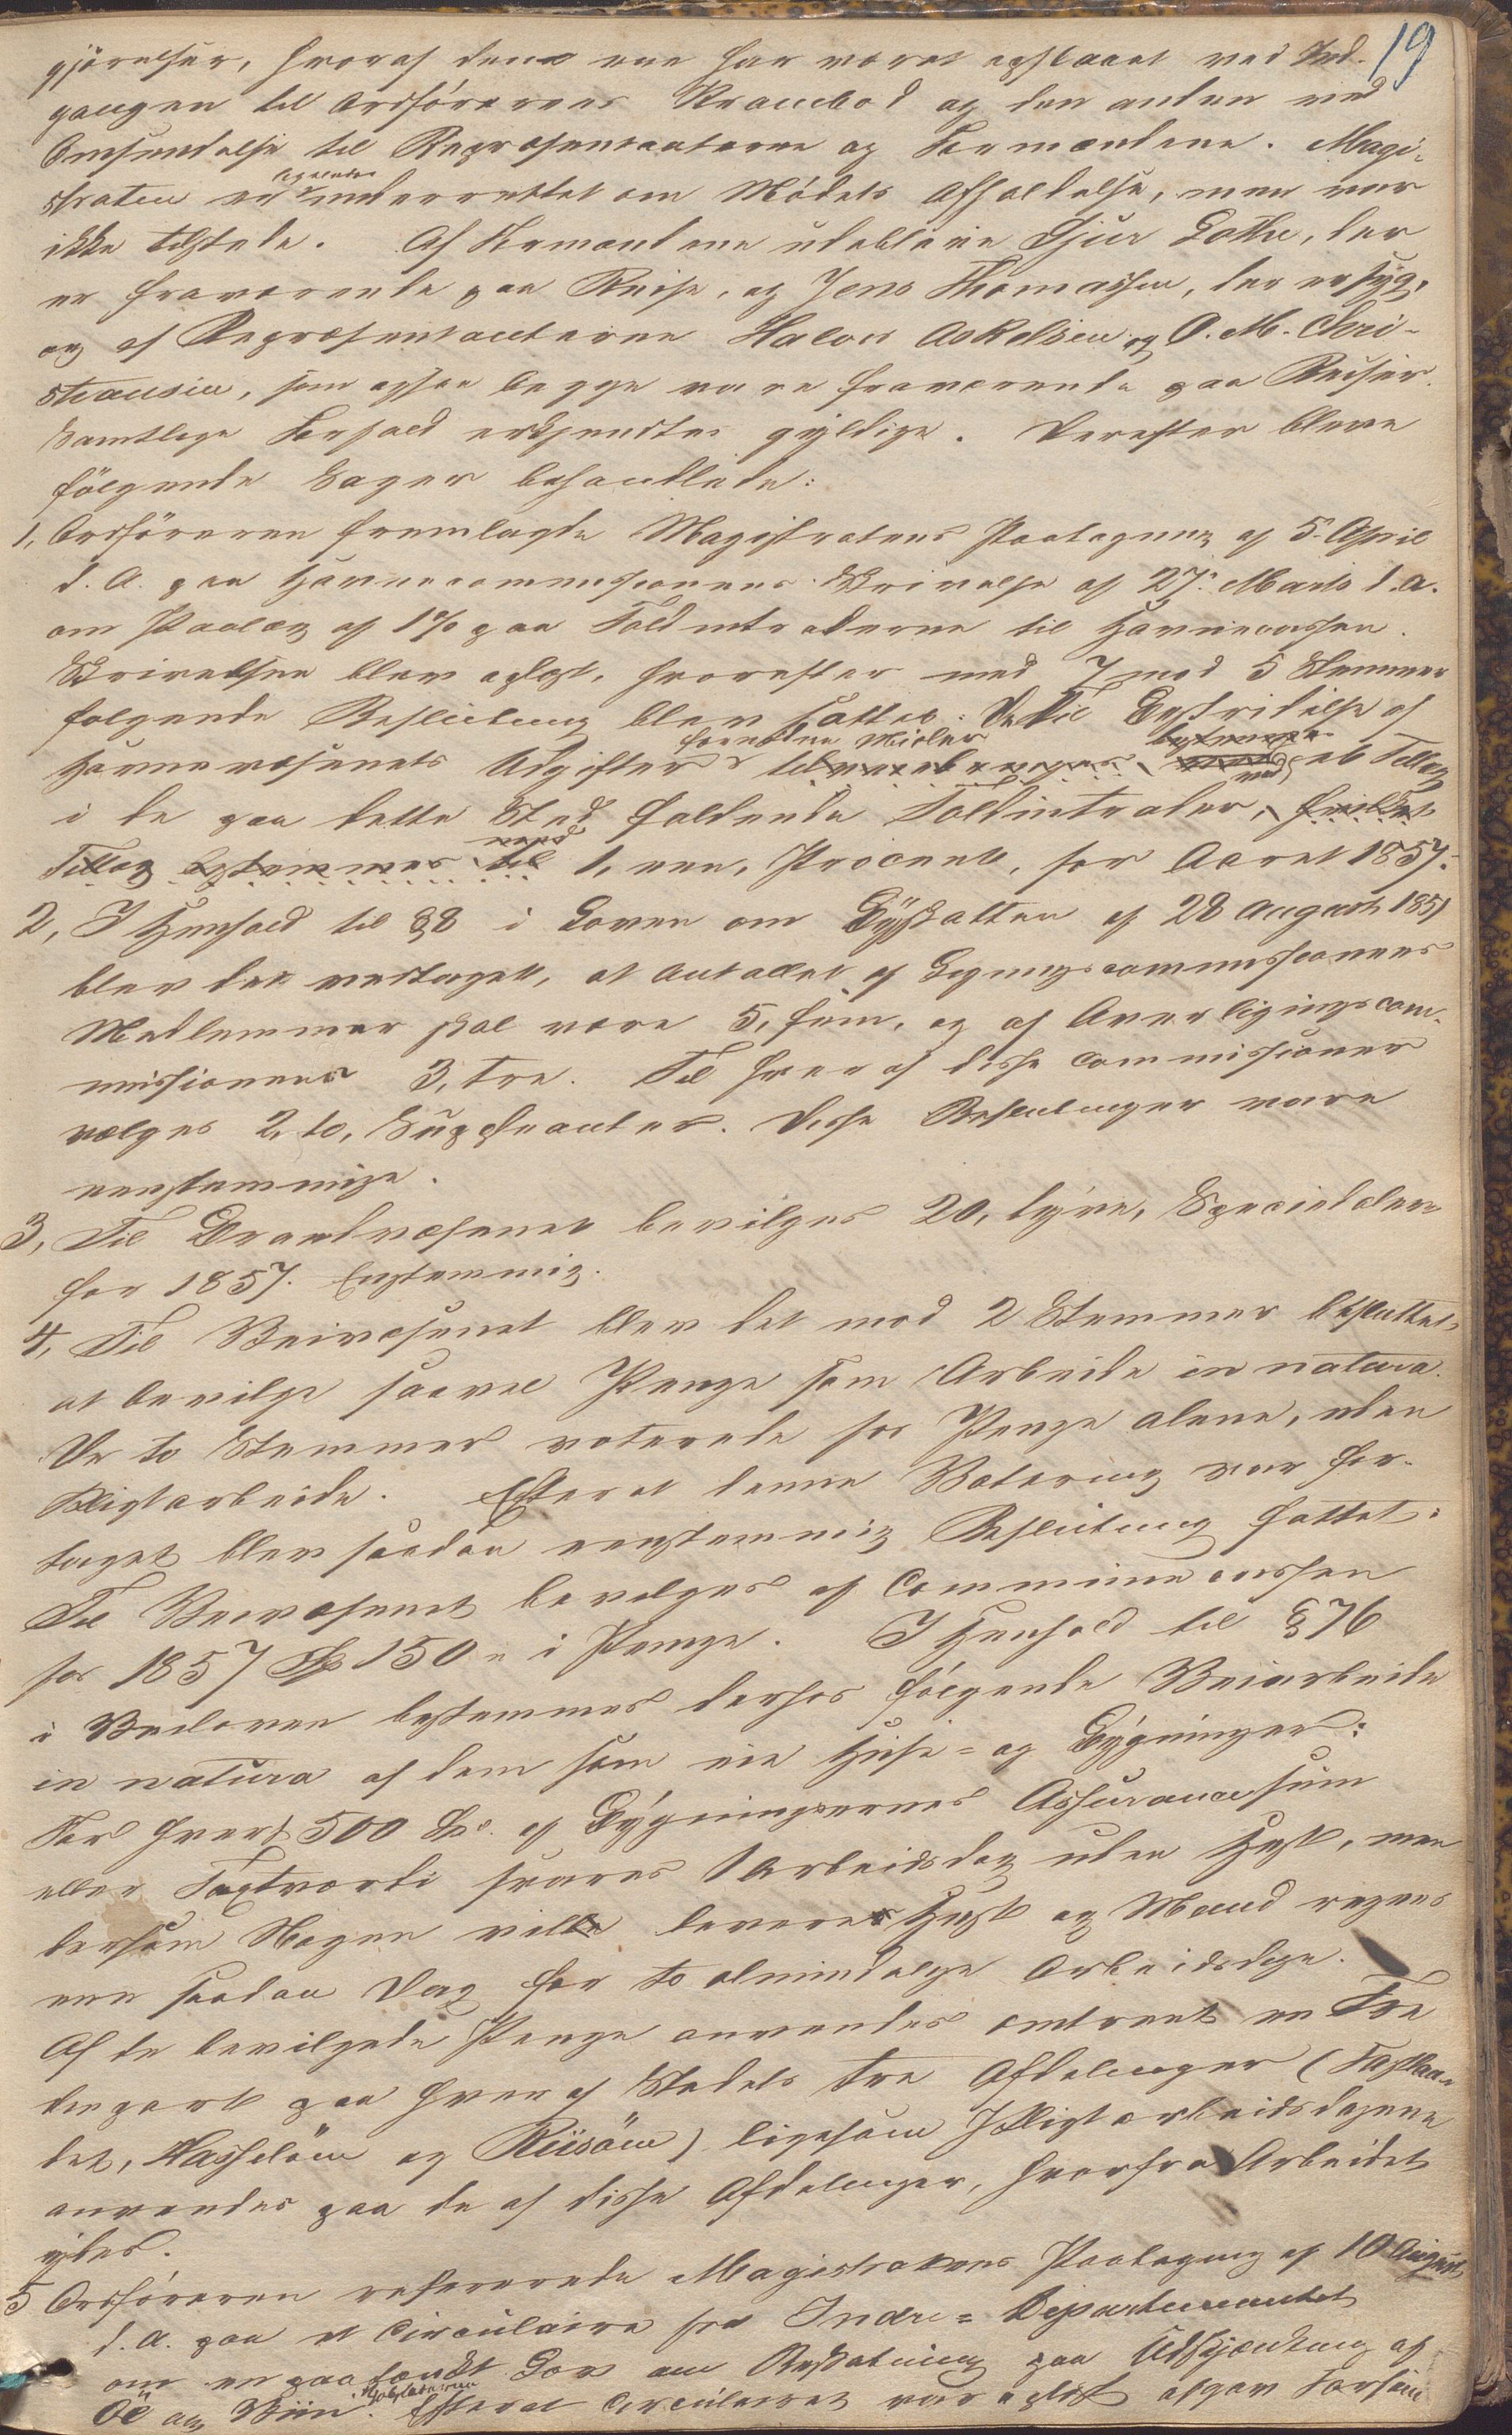 19
gjörelser, hvoraf den ene har været opslaaet ved Ind-
gangen til Ordförerens Krambod og den anden ved
Omsendelse til Repræsentanterne og Formændene. Magi-
straten er ligeledes underrettet om Mödets Afholdelse, men var
ikke tilstede. Af Formændene udebleve Sjur Lothe, der
er fraværende paa Reise, og Jens Thomassen, der er syg,
og af Repræsentanterne Halvor Askelsen og O. M. Chri-
stiansen, som ogsaa begge vare fraværende paa Reiser.
Samtlige Forfald erkjendtes gyldige. Derefter bleve
fölgende Sager behandlede:
1, Ordföreren fremlagde Magistratens Paategning af 5 April
d. A. paa Havnecommissionens Skrivelse af 27. Marts d. A.
om Paalæg af 1% paa Toldintraderne til Havnecassen.
Skrivelsen blev oplæst, hvorefter med 7 mod 5 Stemmer
følgende Beslutning blev fattet: Til Bestridelse af
fornödne Midler
Havnevæsenets Udgifter ved et Tillæg
i de paa dette Sted faldende Toldintrader,
Tillæg bestemmes til 1, een, Procent, for Aaret 1857.
2, I Henhold til §8 i Loven om Byskatten af 28 August 1851
blev det vedtaget, at Antallet af Ligningscommissionens
Medlemmer skal være 5, fem, og af Overligningscom-
missionens 3, tre. Til hver af disse Commissioner
vælges 2, to, Suppleanter. Disse Beslutninger vare
eenstemmige.
3, Til Brandvæsenet bevilges 20, tyve, Speciedaler
for 1857. Enstemmig.
4, Til Veivæsenet blev det mod 2 Stemmer besluttet
at bevilge saavel Penge som Arbeide in natura.
De to Stemmer voterede for Penge alene, uden
Pligtarbeide. Efterat denne Votering var fore-
taget blev saadan eenstemmig Beslutning fattet:
Til Veivæsenet bevilges af Communecassen
for 1857 Sp 150 " i Penge. I Henhold til § 76
i Veiloven bestemmes derfor fölgende Veiarbeide
in natura af dem som eie Huse- og Bygninger:
For hvert 500 Sp. af Bygningernes Assurancesum
eller Taxtværdi svares 1 Arbeidsdag uden Hest, men
dersom Nogen vil levere Hest og Mand regnes
een saadan Dag for to almindelige Arbeidsdage.
Af de bevilgede Penge anvendes omtrent en Tre
diepart paa hver af Stedets tre Afdelinger (Fastlan-
det, Hasselöen og Riisöen) ligesom Pligtarbeidsdagene
anvendes paa de af disse Afdelinger, hvorfra Arbeidet
ydes.
5 Ordföreren refererede Magistratens Paategning af 10 August
d. A. paa et Circulaire fra Indre-Departementet
om en paatænkt Lov om Beskatning paa Udskjænkning af
Öl og Viin. Efterat Circulairet var oplæst afgav Forsam